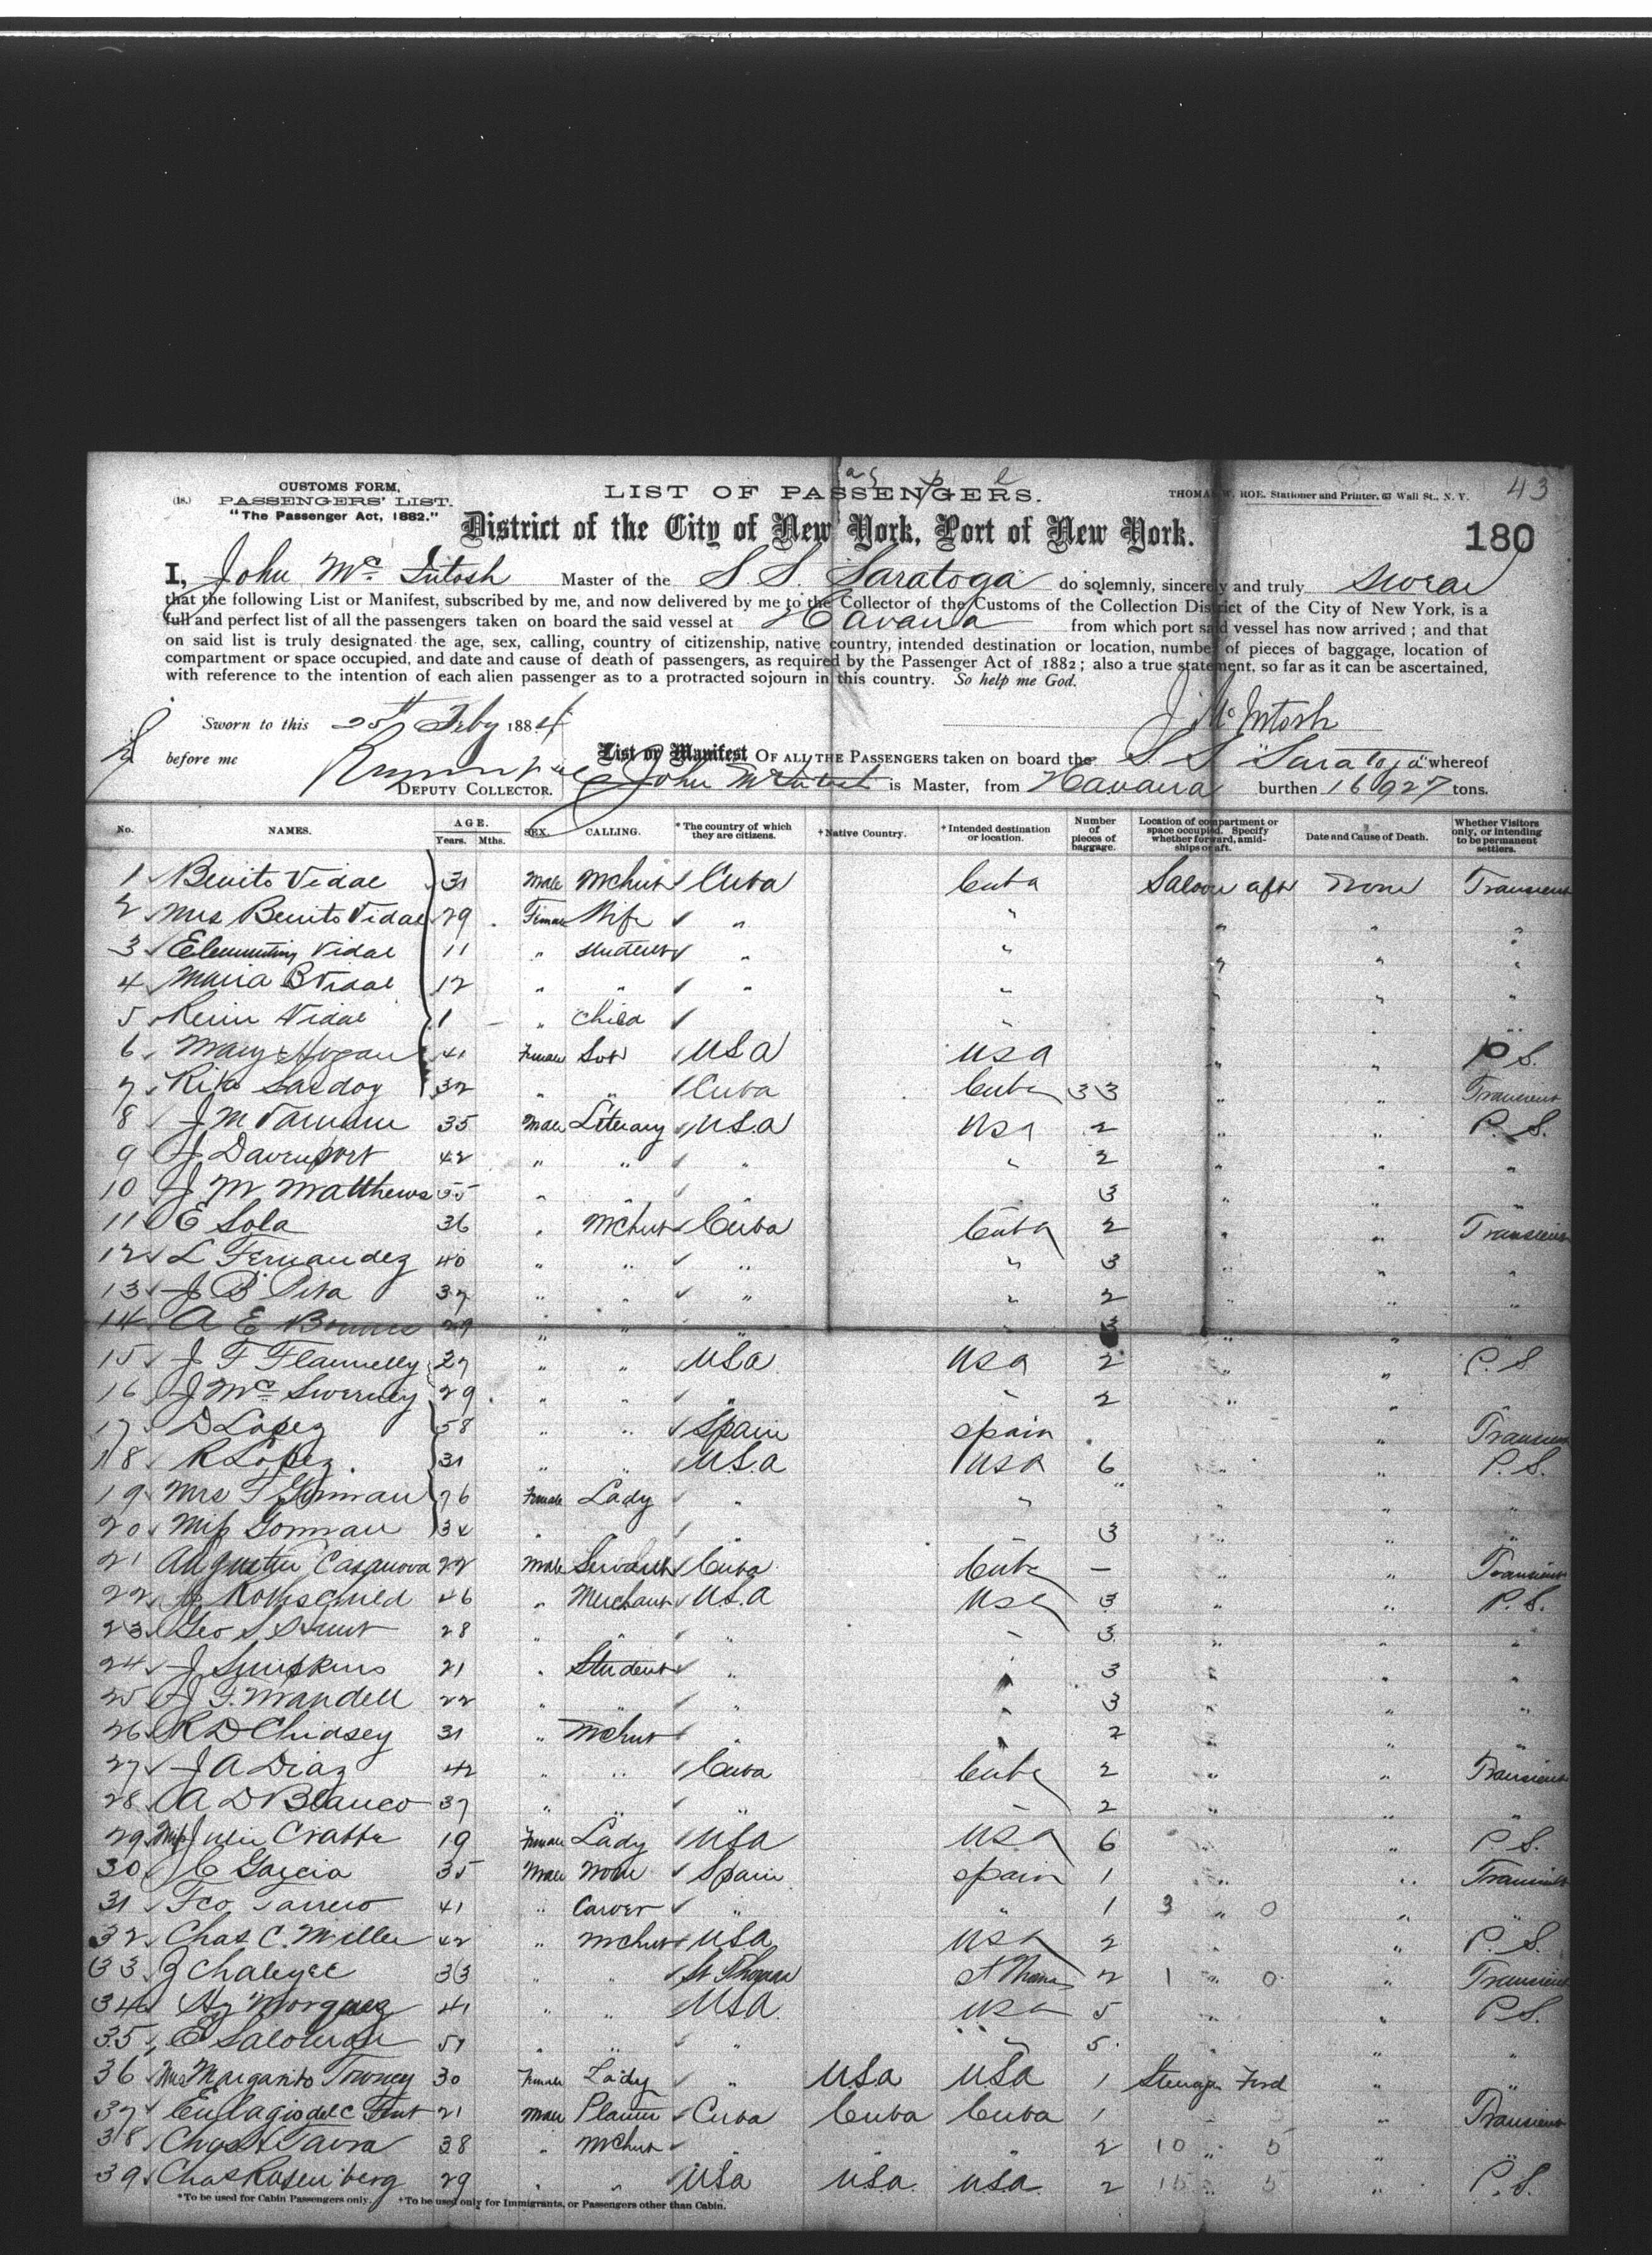 43
CUSTOMS FORM,
(18.) PASSENGERS' LIST.
"The Passenger Act, 1882."
LIST OF PASSENGERS.
THOMAS W. ROE, Stationer and Printer, 63 Wall St., N. Y.
District of the City of New York, Port of New York.
180
I, John McIntosh Master of the S.S. Saratoga do solemnly, sincerely and truly swear
that the following List or Manifest, subscribed by me, and now delivered by me to the Collector of the Customs of the Collection District of the City of New York, is a
full and perfect list of all the passengers taken on board the said vessel at Havana from which port said vessel has now arrived; and that
on said list is truly designated the age, sex, calling, country of citizenship, native country, intended destination or location, number of pieces of baggage, location of
compartment or space occupied, and date and cause of death of passengers, as required by the Passenger Act of 1882; also a true statement, so far as it can be ascertained,
with reference to the intention of each alien passenger as to a protracted sojourn in this country. So help me God.
Sworn to this 25th Feby 1884 J McIntosh
before me
DEPUTY COLLECTOR.
List or Manifest OF ALL THE PASSENGERS taken on board the S.S. "Saratoga" whereof
John McIntosh is Master, from Havana burthen 16 927 tons.
No. NAMES. AGE. Years. Mths. SEX. CALLING. *The country of which they are citizens. †Native Country. †Intended destination or location. Number of pieces of baggage. Location of compartment or space occupied. Specify whether forward, amidships or aft. Date and Cause of Death. Whether Visitors only, or intending to be permanent settlers.
1 Benito Vidal 31 Male Mchnt Cuba Cuba Saloon aft None Transient
2 Mrs Benito Vidal 29 Female Wife " " " " "
3 Vidal 11 " Student " " " " "
4 Maria B Vidal 12 " " " " " " "
5 Vidal 1 " Child " " "
6 Mary Hogan 41 Female Svt USA USA " " P S.
7 Rita 32 " " Cuba Cuba 33 " " Transient
8 J M 35 Male Literary U.S.a Usa 2 " " P. S.
9 J Davenport 42 " " " " 2 " " "
10 J M Matthews 55 " " " 3 " " "
11 E Sola 36 " Mchnt Cuba Cuba 2 " " Transient
12 L Fernandez 40 " " " " 3 " " "
13 J B Pita 37 " " " " 2 " " "
14 A E 29 " " " " 3 " " "
15 J F Flannelly 27 " " USa Usa 2 " " P. S
16 J McSweeney 29 " " " " 2 " "
17 D Lopez 58 " " Spain Spain " Transient
18 R Lopez 31 " " U.S.a Usa 6 " " P. S.
19 Mrs T Gorman 76 Female Lady " " " " " "
20 Miss Gorman 34 " " " 3 " " "
21 Casanova 22 Male Servant Cuba Cuba — " " Transient
22 Rothschild 46 " Merchant U.S.a Usa 3 " " P. S.
23 Geo S 28 " " " " 3 " " "
24 J Simpkins 21 " Student " " 3 " " "
25 J F. Mandell 22 " " " " 3 " " "
26 R D Chidsey 31 " Mchnt " " 2 " " "
27 J A Diaz 42 " " Cuba Cuba 2 " " Transient
28 A D Blanco 37 " " " " 2 " " "
29 Miss Julie Crabbe 19 Female Lady USa Usa 6 " " P. S.
30 C Garcia 35 Male None Spain Spain 1 " " Transient
31 Fco 41 " Carver " " 1 3 " 0 " "
32 Chas C. Miller 42 " Mchnt USA Usa 2 " " P. S.
33 J 33 " " St Thomas St Thomas 2 1 " 0 " Transient
34 41 " " USA Usa 5 " " P S.
35 E Salomon 51 " " " " 5 " " "
36 Mrs Margarito 30 Female Lady " USA USA 1 Steerage Ford " "
37 21 Male Planter Cuba Cuba Cuba 1 " Transient
38 38 " Mchnt " " " 2 10 " 5 " "
39 Chas Rosenberg 29 " " USa USa USa 2 15 " 5 " P. S.
*To be used for Cabin Passengers only. †To be used only for Immigrants, or Passengers other than Cabin.